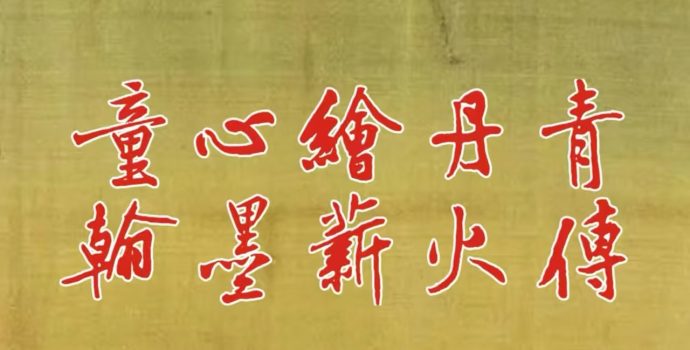 童心繪丹青
翰墨薪火傳